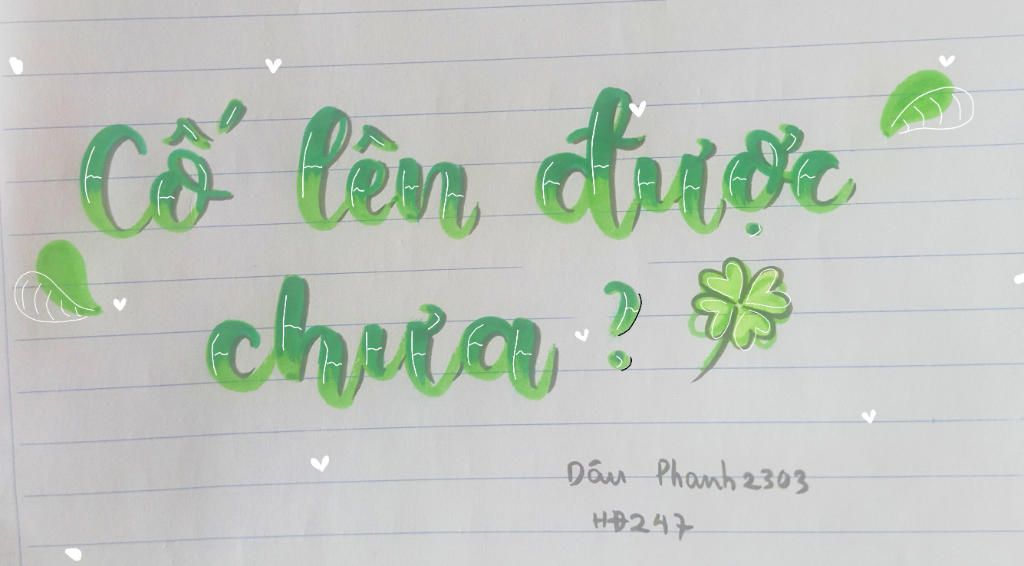 Cố lên được
chưa ?
Dấu Phanh2303
HĐ247